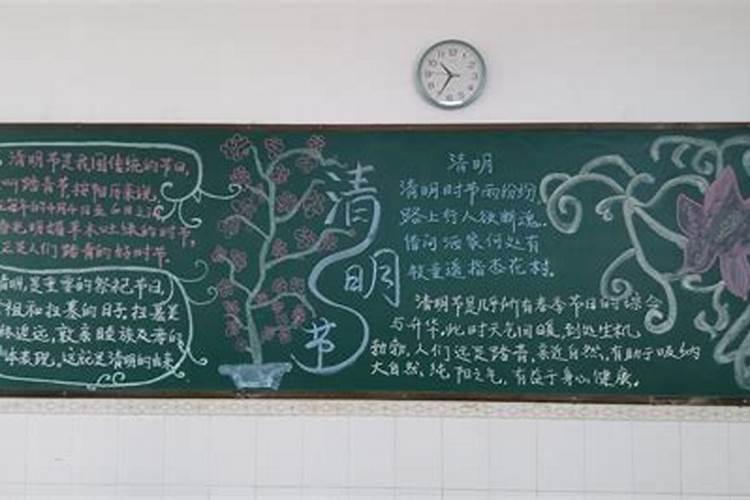 清明节是我国传统的节日,
叫踏青节按阳历来说,
春光明媚草木吐绿的时节,
正是人们踏青的好时节.
清明,是重要的祭祀节日,
祖和扫墓的日子.扫墓是
追远,敦亲睦族及
体表现.这就是清明的由来
清
明
节
清明
清明时节雨纷纷,
路上行人欲断魂.
借问酒家何处有
牧童遥指杏花村.
清明节是几乎所有春季节日的综合
与升华.此时天气回暖,到处生机
勃勃.人们远足踏青,亲近自然,有助于吸纳
大自然 纯阳之气,有益于身心健康.
12